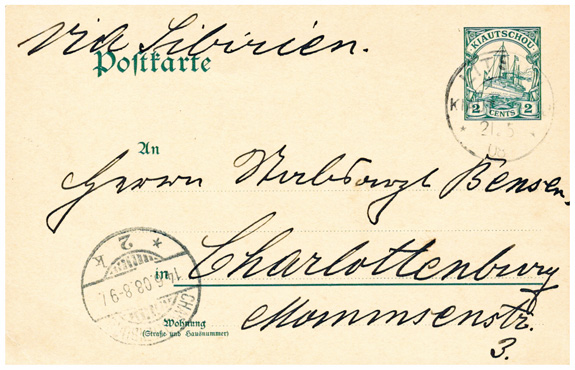 Via Sibirien.
Postkarte
KIAUTSCHOU
2 CENTS 2
21.5
08
An
Herrn Stabsarzt Bensen,
in Charlottenburg
Mommsenstr.
3.
Wohnung
(Straße und Hausnummer)
* 2 k
14.6.08.8-9V.